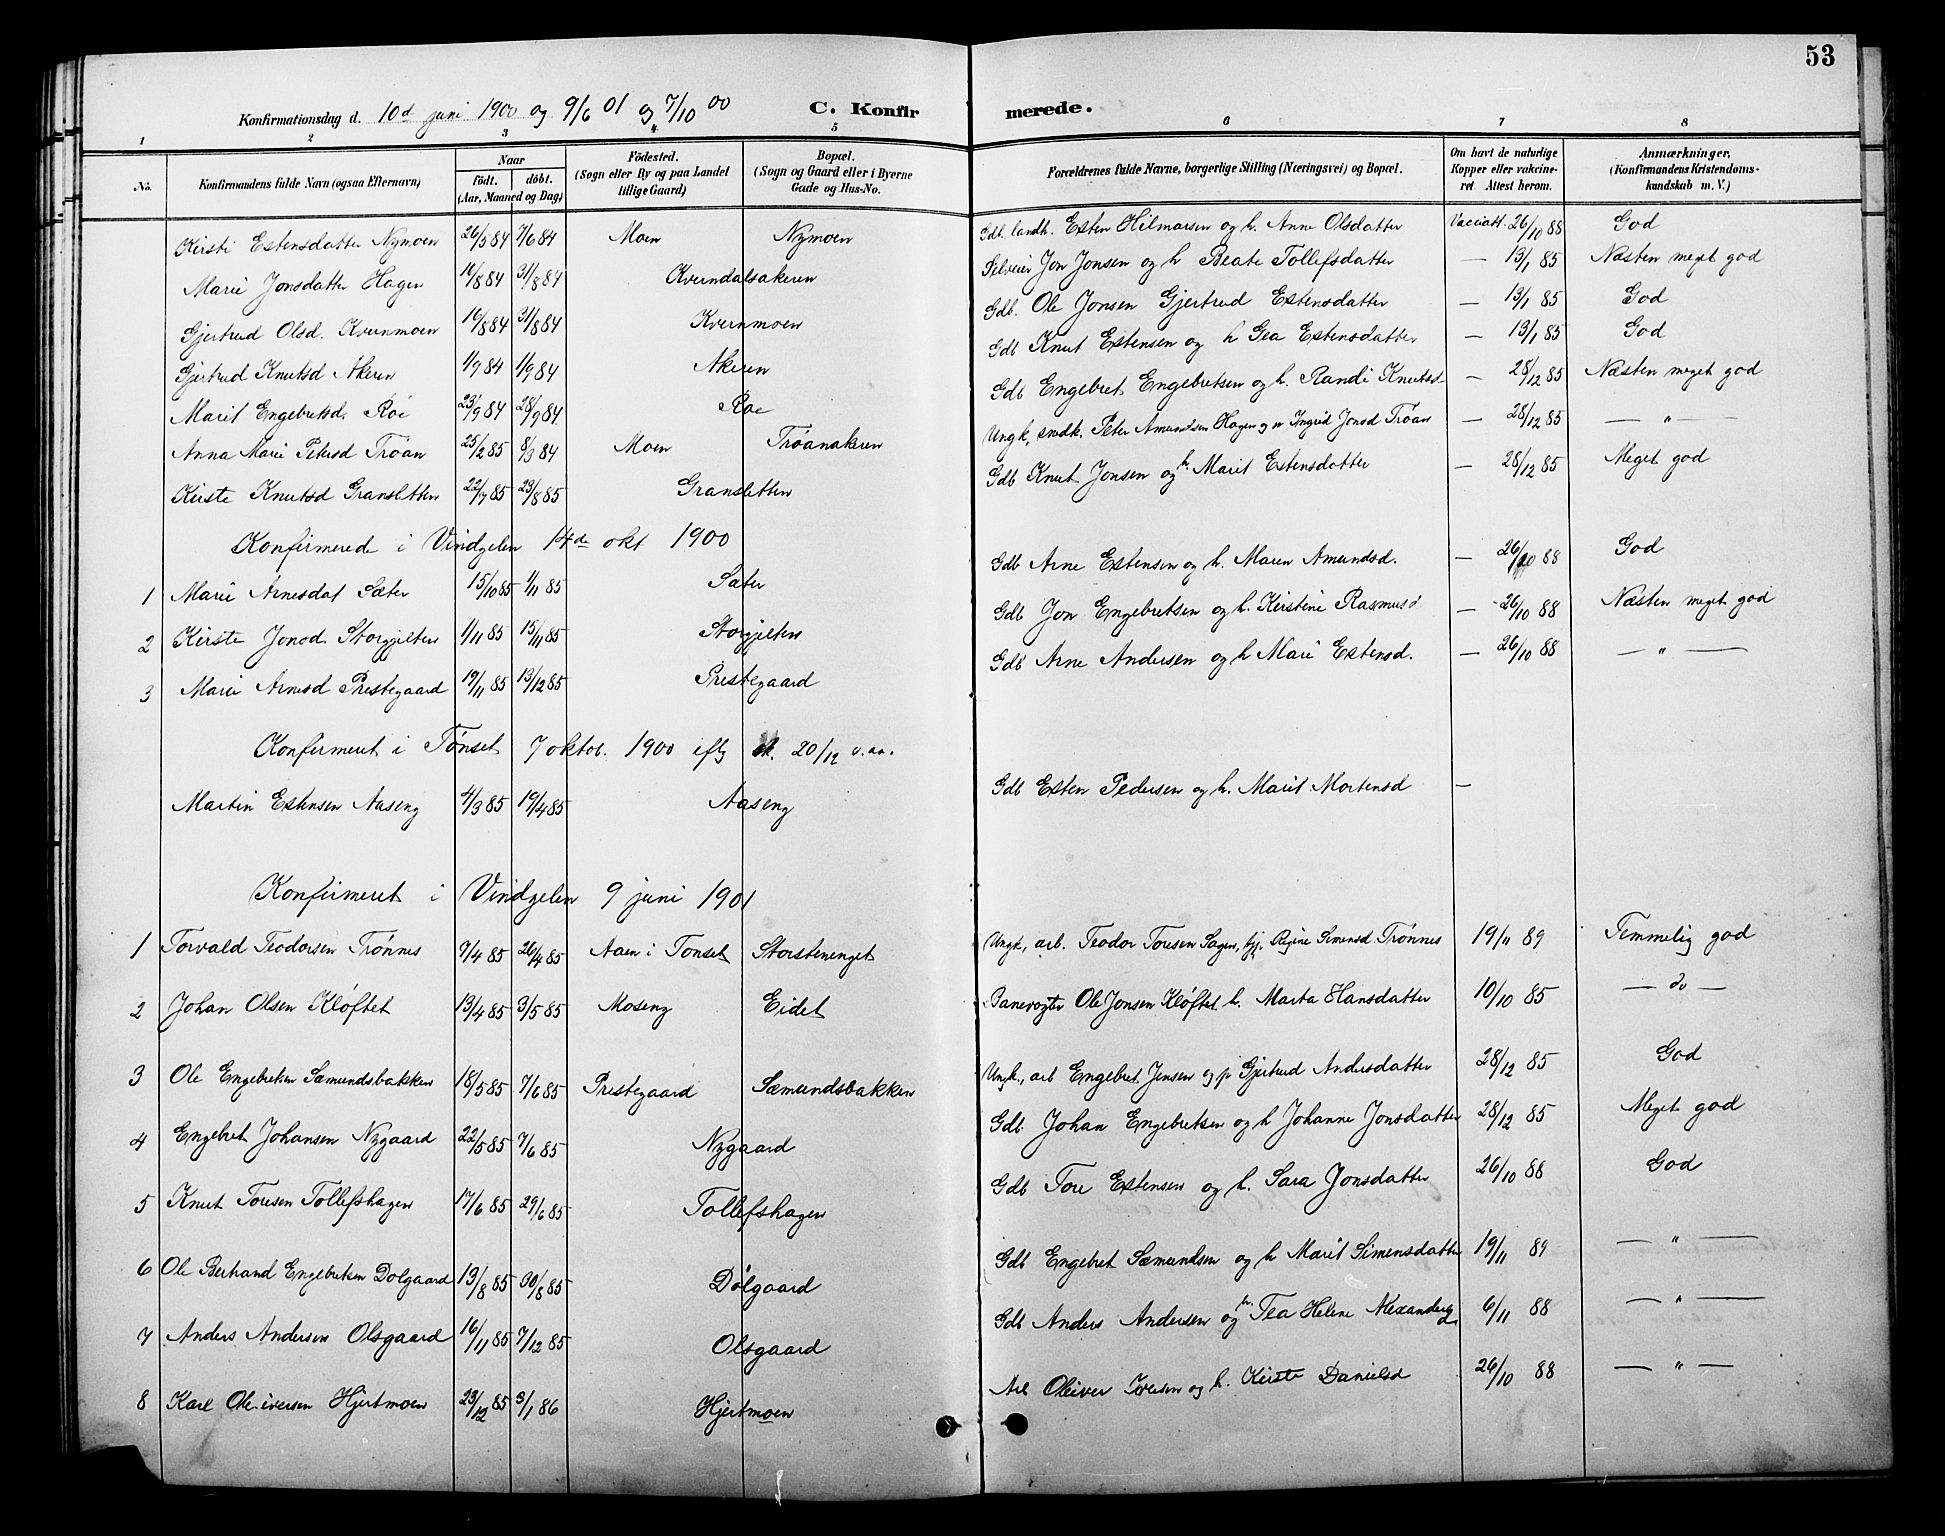 53
Konfirmationsdag d. 10d juni 1900 og 9/6 01 og 7/10 00 C. Konfirmerede.
1 2 3 4 5 6 7 8
No. Konfirmandens fulde Navn (ogsaa Efternavn) Naar födt. döbt. (Aar, Maaned og Dag) Födested. (Sogn eller By og paa Landet tillige Gaard) Bopæl. (Sogn og Gaard eller i Byerne Gade og Hus-No. Forældrenes fulde Navne, borgerlige Stilling (Næringsvei) og Bopæl. Om havt de naturlige Kopper eller vakcineret Attest herom. Anmærkninger. (Konfirmandens Kristendomskundskab m. V.)
Kirsti Estensdatter Nymoen 26/5 84 7/6 84 Moen Nymoen Gdb. landh. Esten Hilmarsen og h. Anne Olsdatter Vacciatt. 26/10 88 God
Marie Jonsdatter Hagen 16/8 84 31/8 84 Kverndalsakeren Selveier Jon Jonsen og h Beate Tollefsdatter — 13/1 85 Næsten meget god
Gjertrud Olsd. Kvernmoen 19/8 84 31/8 84 Kvernmoen Gdb. Ole Jonsen Gjertrud Estensdatter — 13/1 85 God
Gjertrud Knutsd Akeren 1/9 84 1/9 84 Akeren Gdb Knut Estensen og h Gea Estensdatter — 13/1 85 God
Marit Engebretsd. Røe 23/9 84 28/9 84 Røe Gdb Engebret Engebretsen og h. Randi Knutsd — 28/12 85 Næsten meget god
Anna Marie Petersd Trøan 25/2 85 8/3 84 Moen Trøanakeren Ungk, snedk. Peter Amundsen Hagen og p. Ingrid Jonsd Trøan — 28/12 85 — " —
Kirste Knutsd Gransletten 22/7 85 23/8 85 Gransletten Gdb Knut Jonsen og h. Marit Estensdatter — 28/12 85 Meget god
Konfirmerede i Vindgelen 14de okt 1900
1 Marie Arnesdat Sæter 15/10 85 1/11 85 Sæter Gdb Arne Estensen og h. Maren Amundsd. — 26/10 88 God
2 Kirste Jonsd. Storgjelten 1/11 85 15/11 85 Storgjelten Gdb Jon Engebretsen og h. Kirstine Rasmusd — 26/10 88 Næsten meget god
3 Marie Arnesd Prestegaard 19/11 85 13/12 85 Prestegaard Gdb Arne Andersen og h Mari Estensd. — 26/10 88 — " —
Konfirmeret i Tønset 7 oktob. 1900 eftg sk. 20/12 v. aa.
Martin Estensen Aaseng 4/3 85 19/4 85 Aaseng Gdb Esten Pedersen og h. Marit Mortensd —
Konfirmeret i Vindgelen 9 juni 1901
1 Torvald Teodorsen Trønnes 9/4 85 26/4 85 Aaen i Tønset Storsteneget Ungk, arb. Teodor Toresen Sagen, Regine Simensd Trønnes 19/11 89 Temmelig god
2 Johan Olsen Kløftet 13/4 85 3/5 85 Moseng Eidet Banevogter Ole Jonsen Kløftet h. Marta Hansdatter 10/10 85 — do —
3 Ole Engebretsen Sæmundsbakken 18/5 85 7/6 85 Prestegaard Sæmundsbakken Ungk., arb Engebret Jensen og p Gjertrud Andersdatter 28/12 85 God
4 Engebret Johansen Nygaard 22/5 85 7/6 85 Nygaard Gdb Johan Engebretsen og h Johanne Jonsdatter 28/12 85 Meget god
5 Knut Toresen Tollefshagen 17/6 85 29/6 85 Tollefshagen Gdb Tore Estensen og h. Sara Jonsdatter 26/10 88 God
6 Ole Bertrand Engebretsen Dølgaard 13/8 85 30/8 85 Dølgaard Gdb Engebret Sæmundsen og h Marit Simensdatter 19/11 89 — " —
7 Anders Andersen Olsgaard 16/11 85 7/12 85 Olsgaard Gdb Anders Andersen og h. Tea Helene Alexandersd 6/11 88 — " —
8 Karl Ole iversen Hjertmoen 23/12 85 3/1 86 Hjertmoen Oleiver Iversen og h. Kirste Danielsd 26/10 88 — " —